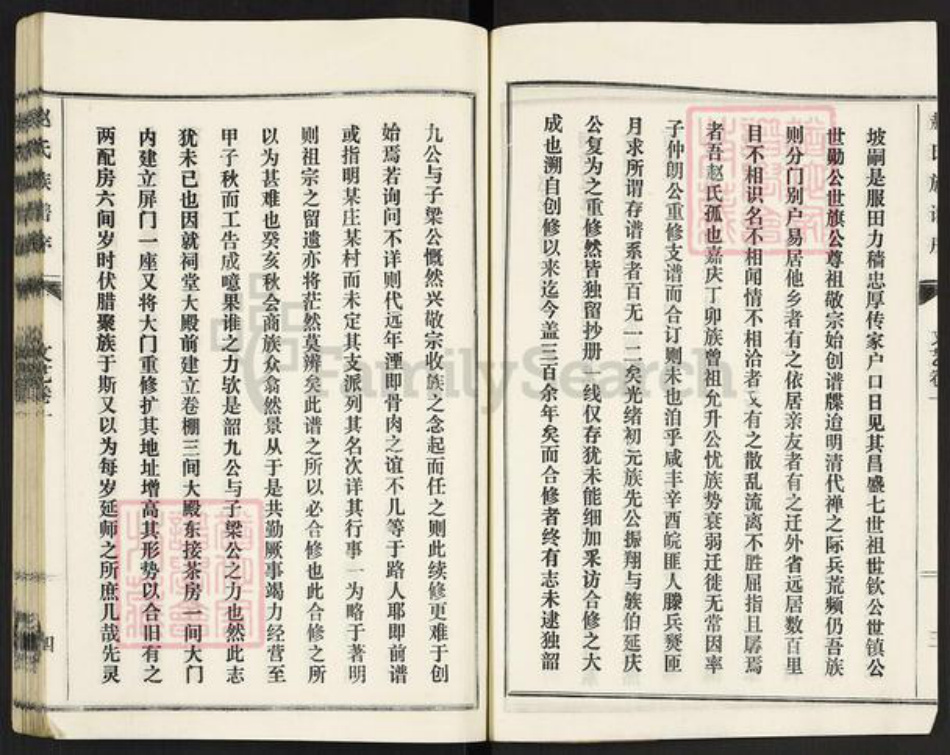 坡嗣是服田力穑忠厚传家户口日见其昌盛七世祖世钦公世镇公
世勋公世旗公尊祖敬宗始创谱牒迨明清代禅之际兵荒频仍吾族
则分门别户易居他乡者有之依居亲友者有之迁外省远居数百里
目不相识名不相闻情不相洽者又有之散乱流离不胜屈指且孱焉
者吾赵氏孤也嘉庆丁卯族曾祖允升公忧族势衰弱迁徙无常因率
子仲朗公重修支谱而合订则未也洎乎咸丰辛酉皖匪人滕兵燹匝
月求所谓存谱系者百无一二矣光绪初元族先公振翔与族伯延庆
公复为之重修然皆独留抄册一线仅存犹未能细加采访合修之大
成也溯自创修以来迄今盖三百余年矣而合修者终有志未逮独韶
九公与子梁公慨然兴敬宗收族之念起而任之则此续修更难于创
始焉若询问不详则代远年湮即骨肉之谊不几等于路人耶即前谱
或指明某庄某村而未定其支派列其名次详其行事一为略于著明
则祖宗之留遗亦将茫然莫辨矣此谱之所以必合修也此合修之所
以为甚难也癸亥秋会商族众翕然景从于是共勤厥事竭力经营至
甲子秋而工告成噫果谁之力欤是韶九公与子梁公之力也然此志
犹未已也因就祠堂大殿前建立卷棚三间大殿东接茶房一间大门
内建立屏门一座又将大门重修扩其地址增高其形势以合旧有之
两配房六间岁时伏腊聚族于斯又以为每岁延师之所庶几哉先灵
赵氏族谱序
四
FamilySearch